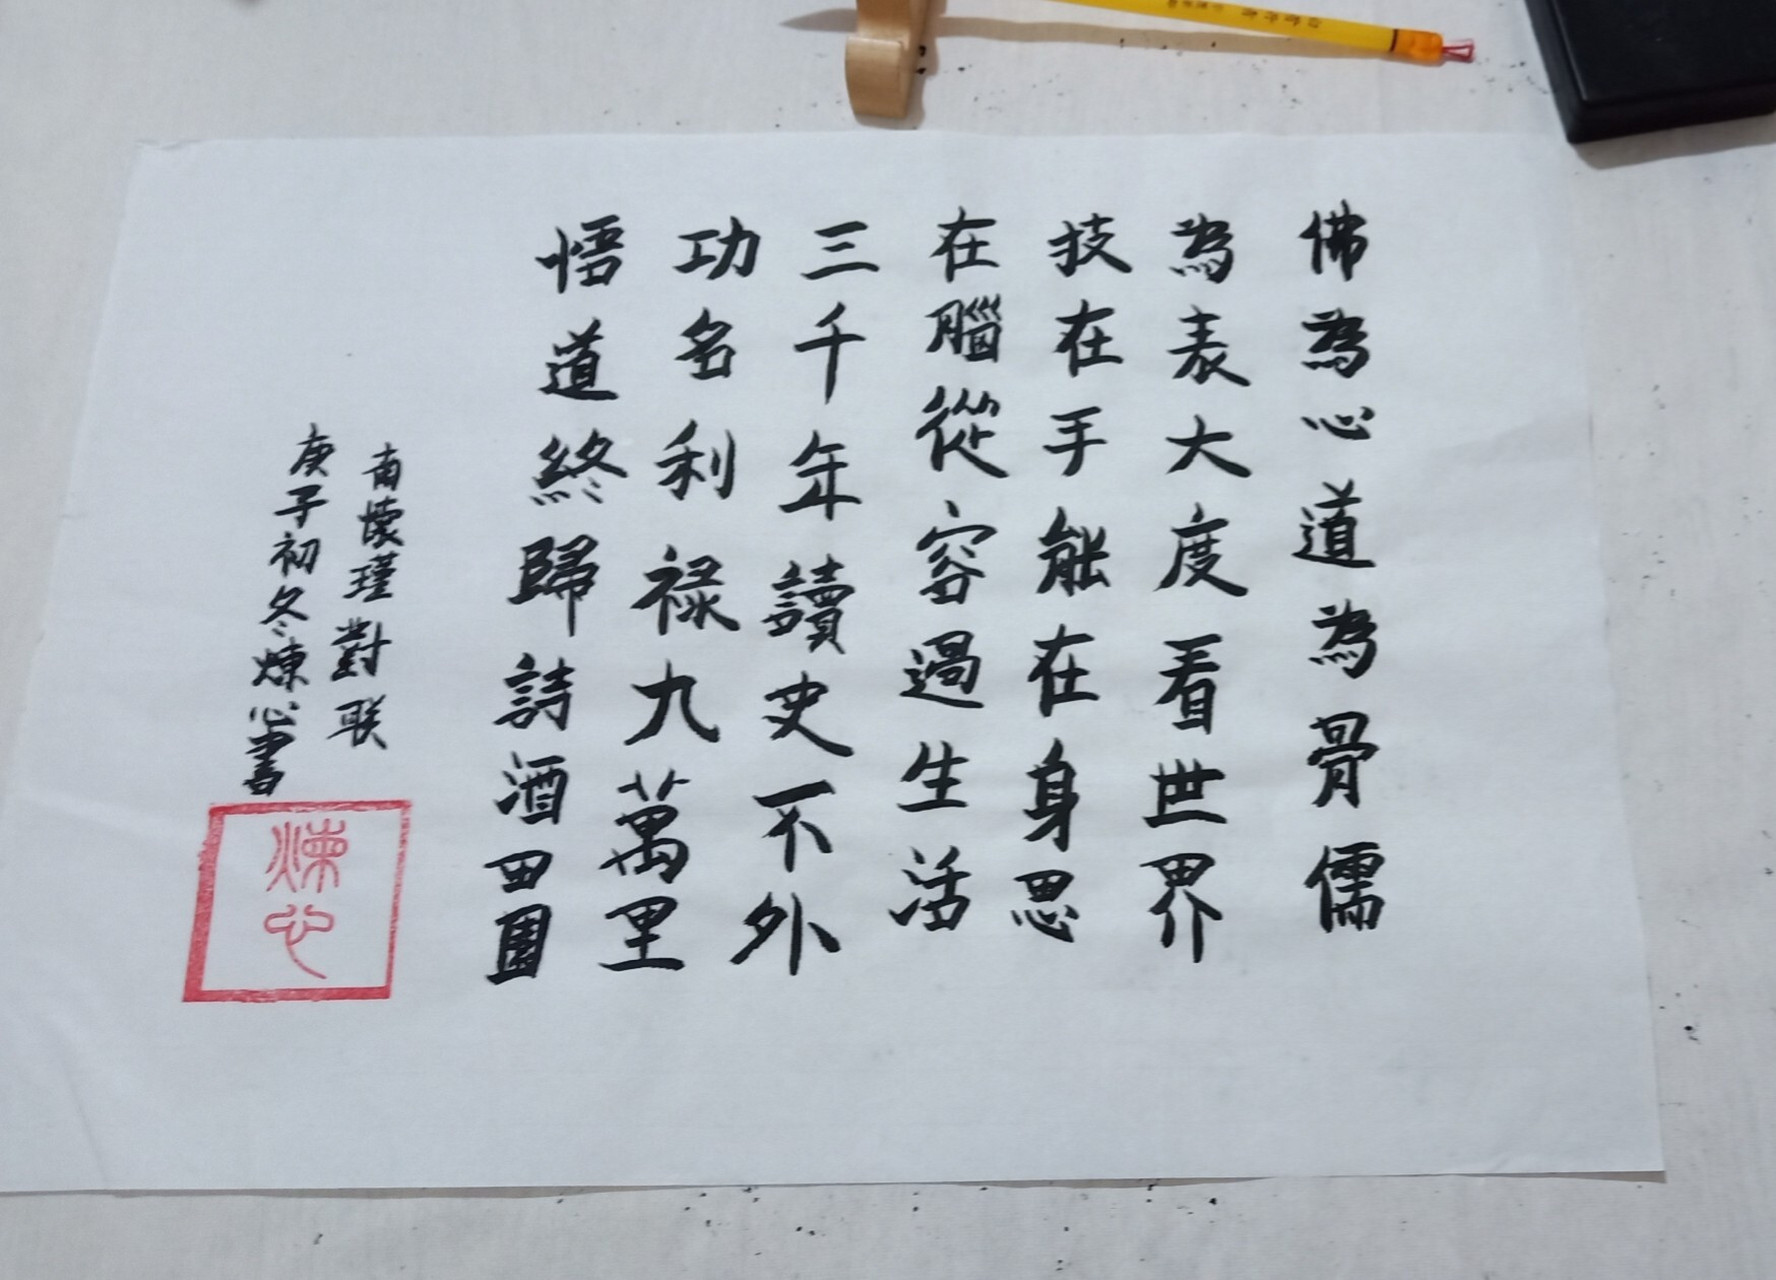 佛為心道為骨儒
為表大度看世界
技在手能在身思
在腦從容過生活
三千年讀史不外
功名利禄九萬里
悟道終歸詩酒田園
南懷瑾對联
庚子初冬煉心書
煉心